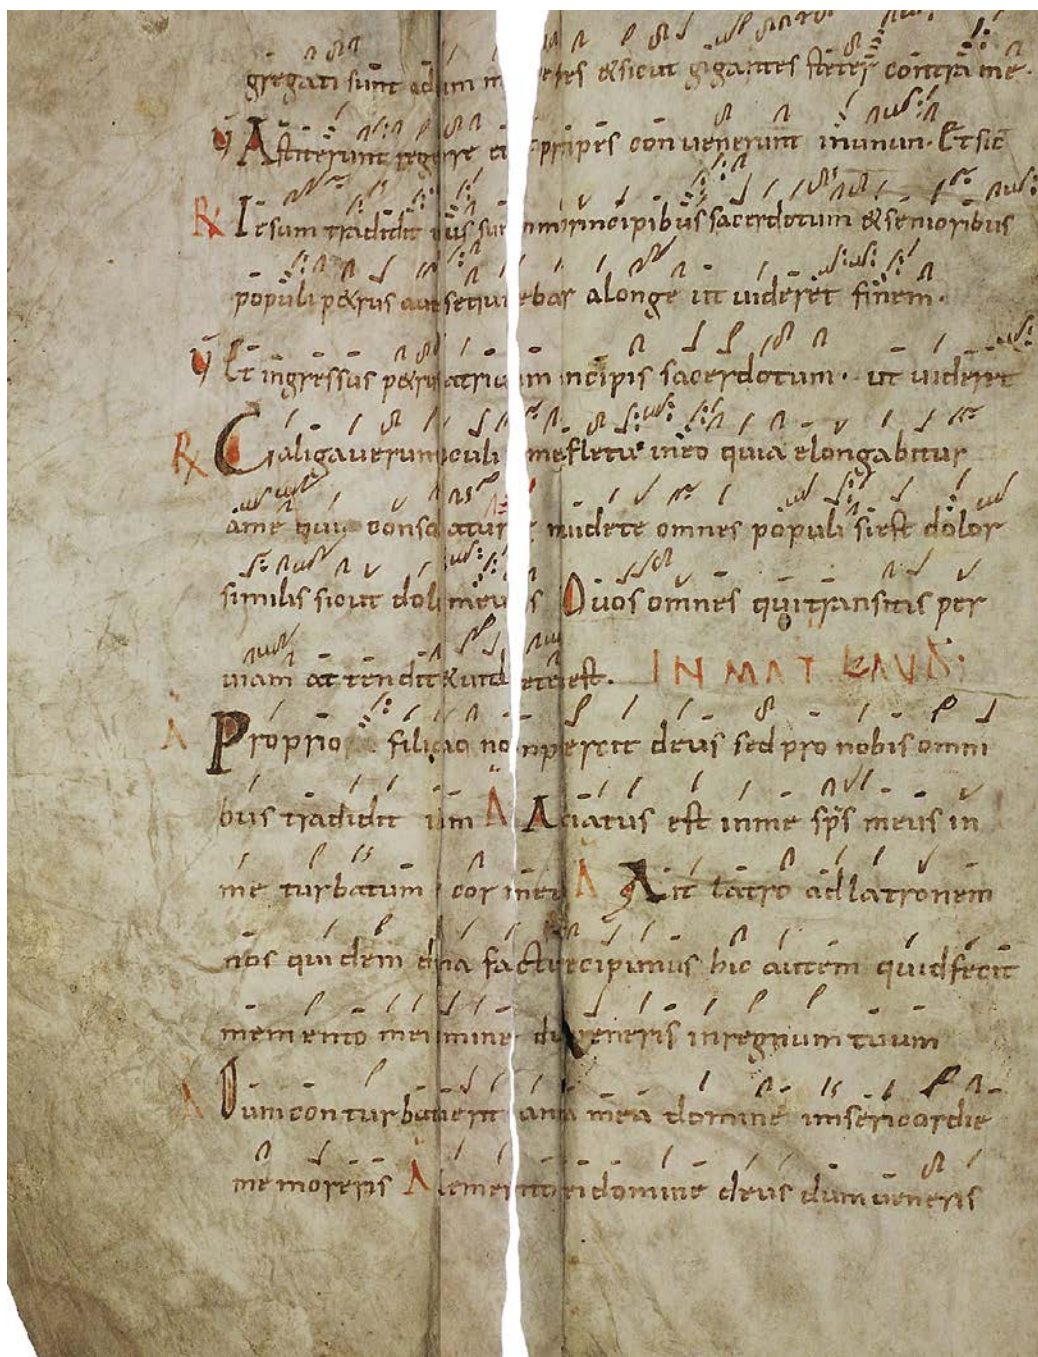 gregati sunt adum in etes & sicut gigantes steter contra me.
V Astiterunt regerre pripes convenerunt inunun. Et sic
R Iesum tradidit sum principibus sacerdotum & senioribus
populi p&rus aut sequi ebat alonge ut uideret finem.
V Et ingressus p&rus atriu in ncipis sacerdotum. ut uideret
R Caligaverun oculi me fletu meo quia elongabitur
ame qui consolatur uidete omnes populi siest dolor
similis sicut dol meus O uos omnes qui transitis per
uiam attendit& uid ete est. IN MAT LAUD:
A Proprio filio no perercit deus sed pro nobis omni
bus tradidit um A Anxiatus est inme sps meus in
me turbatum cor meu A Ait latro ad latronem
nos quidem digna factis recipimus hic autem quid fecit
memento mei mine du veneris inregnum tuum
A Dum conturbaverit ani mea domine misericordie
memoreris A Memento ei domine deus dum veneris